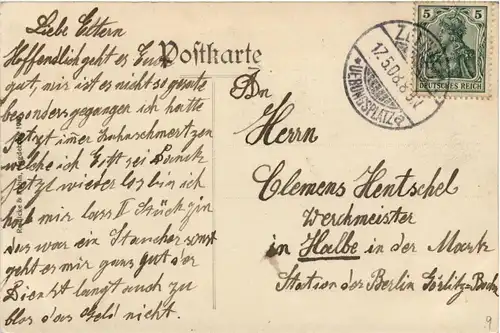 Liebe Eltern
Hoffendlich geht es Euch
gut, mir ist es nicht so gerate
besonders gegangen ich hatte
jetzt imer Zahnschmertzen
welche ich Gott sei Dank
jetzt wieder los bin ich
hab mir lass II Stück zin
das war ein Staucher sonst
geht es mir ganz gut der
Dienst langt auch zu
blos das Geld nicht.
Postkarte
An
Herrn
Clemens Hentschel
Werchmeister
in Halbe in der Mark
Station der Berlin Görlitz-Bahn
17.5.08.8-9
UEBUNGSPLATZ a
5 5
DEUTSCHES REICH
9